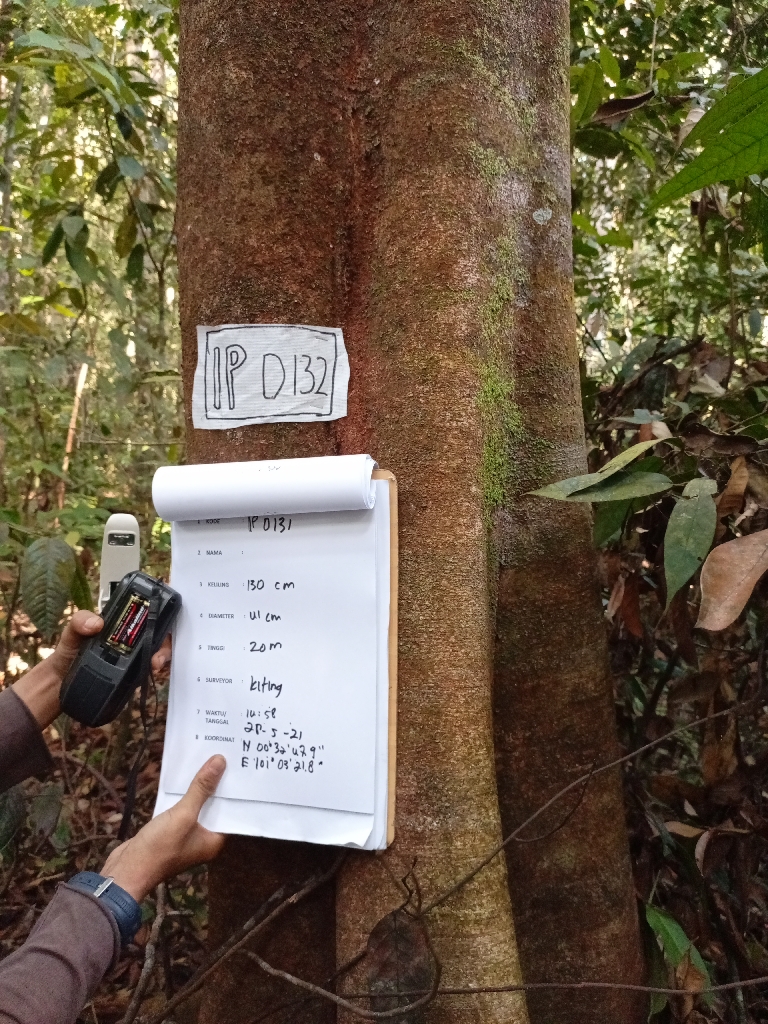 IP D132
1 KODE : IP D131
2 NAMA :
3 KELILING : 130 cm
4 DIAMETER : 41 cm
5 TINGGI : 20 m
6 SURVEYOR : kiting
7 WAKTU/ TANGGAL : 14:58
28-5-21
8 KOORDINAT : N 00°32'47.9"
E 101°03'21.8"